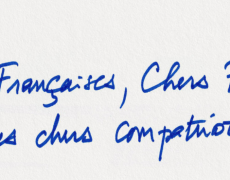 Françaises, Chers
es chers compatrio